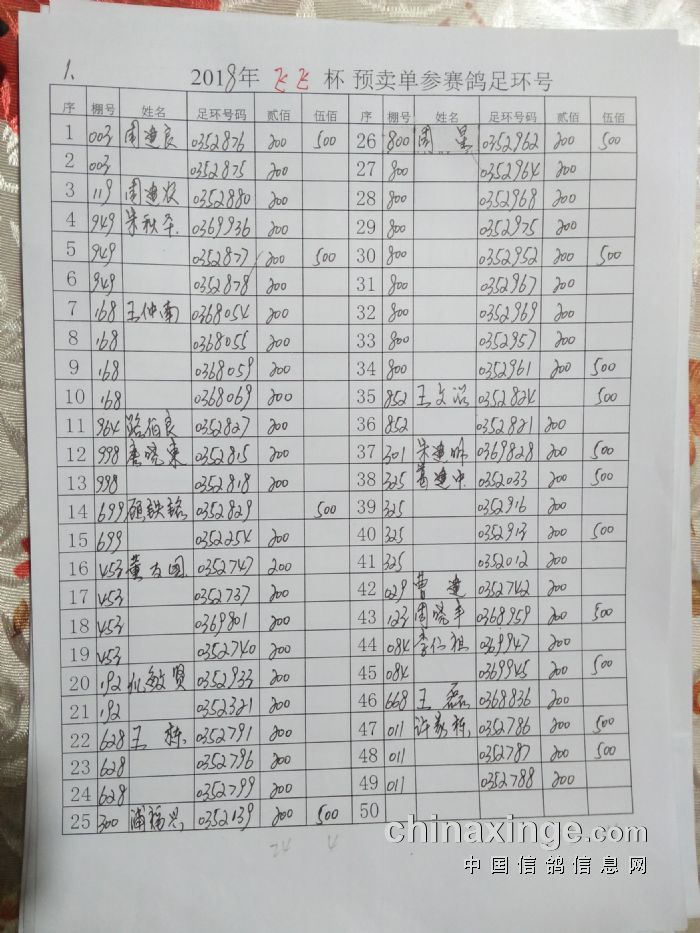 1.
2018年 飞飞 杯 预卖单参赛鸽足环号
序 棚号 姓名 足环号码 贰佰 伍佰 序 棚号 姓名 足环号码 贰佰 伍佰
1 003 周建良 0352876 200 500 26 800 周 星 0352962 200 500
2 003 0352875 200 27 800 0352964 200
3 119 周建农 0352880 200 28 800 0352968 200
4 949 朱秋平 0369936 200 29 800 0352975 200
5 949 0352877 200 500 30 800 0352952 200 500
6 949 0352878 200 31 800 0352967 200
7 168 王仲南 0368054 200 32 800 0352969 200
8 168 0368055 200 33 800 0352957 200
9 168 0368059 200 34 800 0352961 200 500
10 168 0368069 200 35 852 王 0352824 500
11 964 陆伯良 0352827 200 36 852 0352821 200
12 998 唐晓东 0352815 200 37 301 朱建明 0369828 200 500
13 998 0352818 200 38 325 葛建中 0352033 200 500
14 699 顾铁铭 0352829 500 39 325 0352916 200
15 699 0352254 200 40 325 0352913 200 500
16 453 董友国 0352747 200 41 325 0352012 200
17 453 0352737 200 42 029 曹 建 0352742 200
18 453 0369801 200 43 123 周晓丰 0368959 200 500
19 453 0352740 200 44 084 李仁祖 0369947 200
20 192 倪敏贤 0352933 200 45 084 0369945 200 500
21 192 0352321 200 46 668 王 磊 0368836 200
22 628 王 栋 0352791 200 47 011 许敖栋 0352786 200 500
23 628 0352796 200 48 011 0352787 200 500
24 628 0352799 200 49 011 0352788 200
25 300 浦福兴 0352139 200 500 50
24 4
chinaxinge.com
中国信鸽信息网